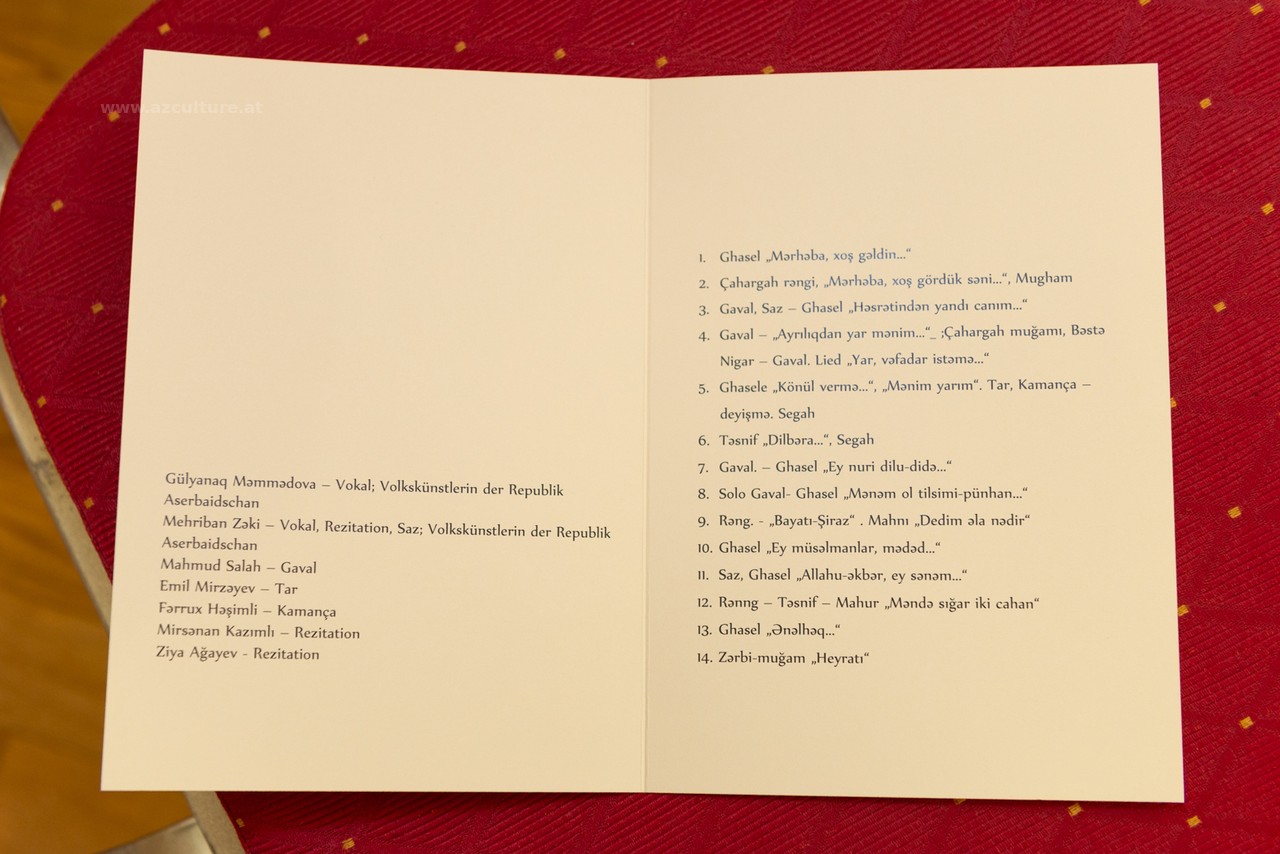 www.azculture.at
Gülyanaq Məmmədova – Vokal; Volkskünstlerin der Republik
Aserbaidschan
Mehriban Zəki – Vokal, Rezitation, Saz; Volkskünstlerin der Republik
Aserbaidschan
Mahmud Salah – Gaval
Emil Mirzəyev – Tar
Fərrux Həşimli – Kamança
Mirsənan Kazımlı – Rezitation
Ziya Ağayev - Rezitation
1. Ghasel „Mərhəba, xoş gəldin...“
2. Çahargah rəngi, „Mərhəba, xoş gördük səni...“, Mugham
3. Gaval, Saz – Ghasel „Həsrətindən yandı canım...“
4. Gaval – „Ayrılıqdan yar mənim...“_ ;Çahargah muğamı, Bəstə
Nigar – Gaval. Lied „Yar, vəfadar istəmə...“
5. Ghasele „Könül vermə...“, „Mənim yarım“. Tar, Kamança –
deyişmə. Segah
6. Təsnif „Dilbəra...“, Segah
7. Gaval. – Ghasel „Ey nuri dilu-didə...“
8. Solo Gaval- Ghasel „Mənəm ol tilsimi-pünhan...“
9. Rəng. - „Bayatı-Şiraz“ . Mahnı „Dedim əla nədir“
10. Ghasel „Ey müsəlmanlar, mədəd...“
11. Saz, Ghasel „Allahu-əkbər, ey sənəm...“
12. Rənng – Təsnif – Mahur „Məndə sığar iki cahan“
13. Ghasel „Ənəlhəq...“
14. Zərbi-muğam „Heyratı“